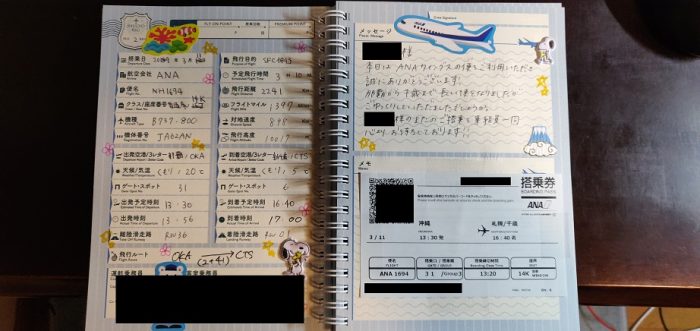 FLY ON POINT
PREMIUM POINT
搭乗日 3月11
飛行目的 SFC修行
航空会社
ANA
予定飛行時間
3 H 10 M
便名 NH1694
飛行距離 2241 Km
クラス/座席番号 14K
フライトマイル 1397
機種 B737-800
対地速度 898
機体番号 JA02AN
飛行高度
出発空港/3レター 那覇/OKA
到着空港/3レター CTS
天候/気温 くもり / 20℃
天候/気温 くもり / 5℃
ゲート・スポット 31
ゲート・スポット 6
出発予定時刻 13:30
到着予定時刻 16:40
出発時刻 13:56
到着時刻 17:00
離陸滑走路 RW36
着陸滑走路
飛行ルート OKA (2+41) CTS
運航乗務員
客室乗務員
メッセージ
様
本日は ANAウイングスの便をご利用いただき
誠にありがとうございます。
那覇から千歳まで長い便となりましたが
ごゆっくりしていただけましたでしょうか。
様のまたのご搭乗を乗務員一同
心よりお待ちしております!!
メモ
搭乗券
BOARDING PASS
ANA
沖縄
札幌/千歳
3/11
13:30 発
16:40 着
便名
FLIGHT
ANA 1694
搭乗口/搭乗順
GATE / GROUP
31 /Group3
搭乗締切時刻
Boarding Gate Time
13:20
座席
SEAT
14K
WINDOW